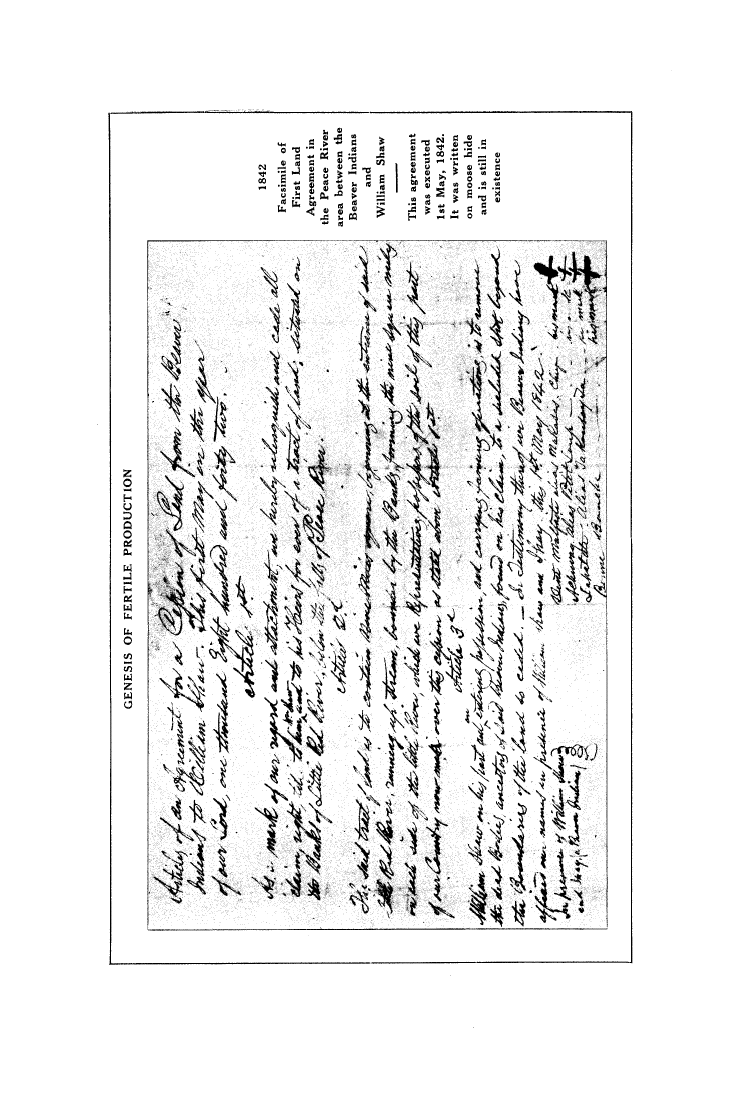 GENESIS OF FERTILE PRODUCTION
Articles of an Agreement for a Cession of Land from the Beaver
Indians to William Shaw. This first May in the year
of our Lord, one thousand Eight hundred and forty two.
Article 1st
As a mark of our regard and attachment, we hereby relinquish and cede all
claim, right, to him and to his Heirs for ever of a tract of land, situated on
the Banks of Little Red River, below the falls of Peace River.
Article 2d
This said tract of land is to contain miles square, beginning at the entrance of said
Red River, running up stream, bounded by the Banks, running the
on each side of the little River, which we Representatives, of the soil of this part
of our Country now make over this as above stated 1st
Article 3d
William Shaw on his part on entering possession, and carrying farming operations, is to remove
the dead Bodies, ancestors of said Beaver Indians, found on his claim, to a beyond
the Boundaries of the land so ceded. — In Testimony thereof we Beaver Indians have
affixed our names in presence of William Shaw and the 1st May 1842.
In presence of William Shaw
and Beaver Indian
his mark
alias
his mark
1842
Facsimile of
First Land
Agreement in
the Peace River
area between the
Beaver Indians
and
William Shaw
This agreement
was executed
1st May, 1842.
It was written
on moose hide
and is still in
existence